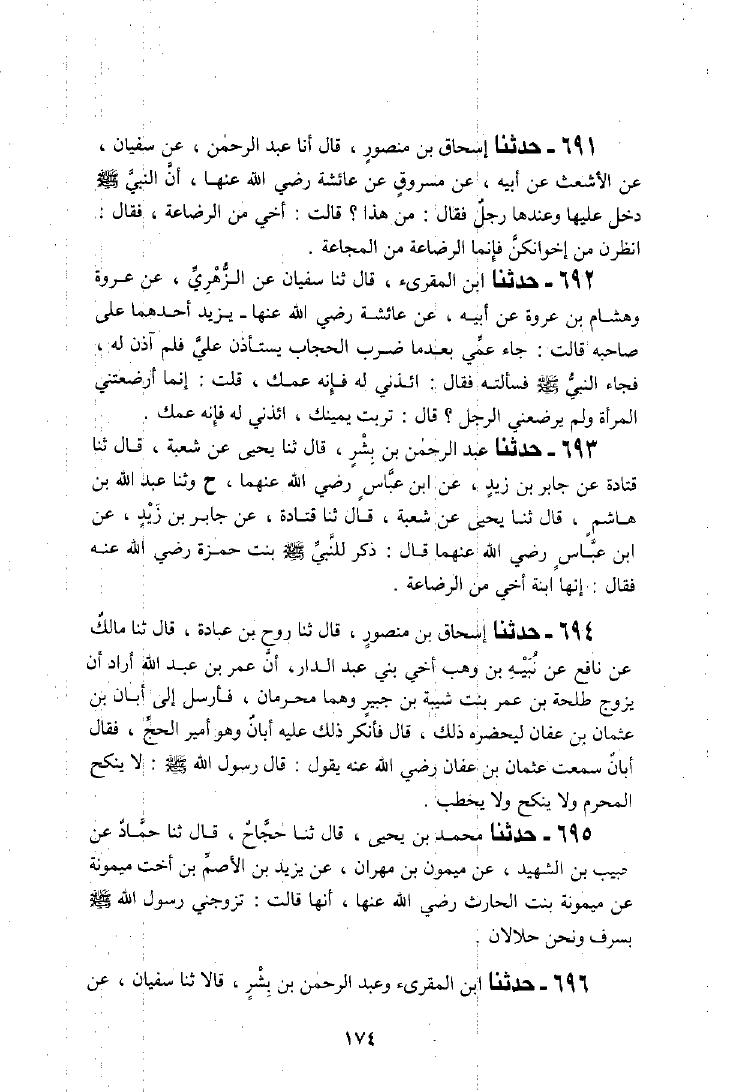 ٦٩١ ـ حدثنا إسحاق بن منصورٍ ، قال أنا عبد الرحمٰن ، عن سفيان ،
عن الأشعث عن أبيه ، عن مسروقٍ عن عائشة رضي الله عنهـا ، أنَّ النبيَّ ﷺ
دخل عليها وعندها رجلٌ فقال : من هذا ؟ قالت : أخي من الرضاعة ، فقال :
انظرن من إخوانكنَّ فإنما الرضاعة من المجاعة .
٦٩٢ ـ حدثنا ابن المقرىء ، قال ثنا سفيان عن الـزُّهْرِيِّ ، عن عـروة
وهشـام بن عروة عن أبيـه ، عن عائشـة رضي الله عنهـا ـ يـزيد أحـدهمـا على
صاحبه قالت : جاء عمِّي بعـدما ضـرب الحجاب يستـأذن عليَّ فلم آذن له ،
فجاء النبيُّ ﷺ فسألتـه فقال : ائـذني له فـإنه عمـك ، قلت : إنمـا أرضعتني
المرأة ولم يرضعني الرجل ؟ قال : تربت يمينك ، ائذني له فإنه عمك .
٦٩٣ ـ حدثنا عبد الرحمٰن بن بِشْرٍ ، قال ثنا يحيى عن شعبة ، قـال ثنا
قتادة عن جابر بن زيدٍ ، عن ابن عبَّاسٍ رضي الله عنهما ، ح وثنا عبد الله بن
هـاشمٍ ، قال ثنـا يحيى عن شعبة ، قـال ثنا قتـادة ، عن جابـر بن زَيْدٍ ، عن
ابن عبَّـاسٍ رضي الله عنهمـا قـال : ذكر للنَّبيِّ ﷺ بنت حمـزة رضي الله عنـه
فقال : إنها ابنة أخي من الرضاعة .
٦٩٤ ـ حدثنا إسحاق بن منصورٍ ، قال ثنا روح بن عبادة ، قال ثنا مالكٌ
عن نافع عن نُبَيْـهِ بن وهب أخي بني عبد الـدار، أنَّ عمر بن عبـد الله أراد أن
يزوج طلحة بن عمر بنت شيبة بن جبيرٍ وهما محرمان ، فـأرسل إلى أبـان بن
عثمان بن عفان ليحضره ذلك ، قال فأنكر ذلك عليه أبانٌ وهو أمير الحجِّ ، فقال
أبانٌ سمعت عثمان بن عفان رضي الله عنه يقول : قال رسول الله ﷺ : لا ينكح
المحرم ولا ينكح ولا يخطب .
٦٩٥ ـ حدثنا محمـد بن يحيى ، قال ثنـا حجَّاجٌ ، قـال ثنا حمَّـادٌ عن
حبيب بن الشهيد ، عن ميمون بن مهران ، عن يزيد بن الأصمِّ بن أخت ميمونة
عن ميمونة بنت الحارث رضي الله عنها ، أنها قالت : تزوجني رسول الله ﷺ
بسرف ونحن حلالان .
٦٩٦ ـ حدثنا ابن المقرىء وعبد الرحمٰن بن بِشْرٍ ، قالا ثنا سفيان ، عن
١٧٤